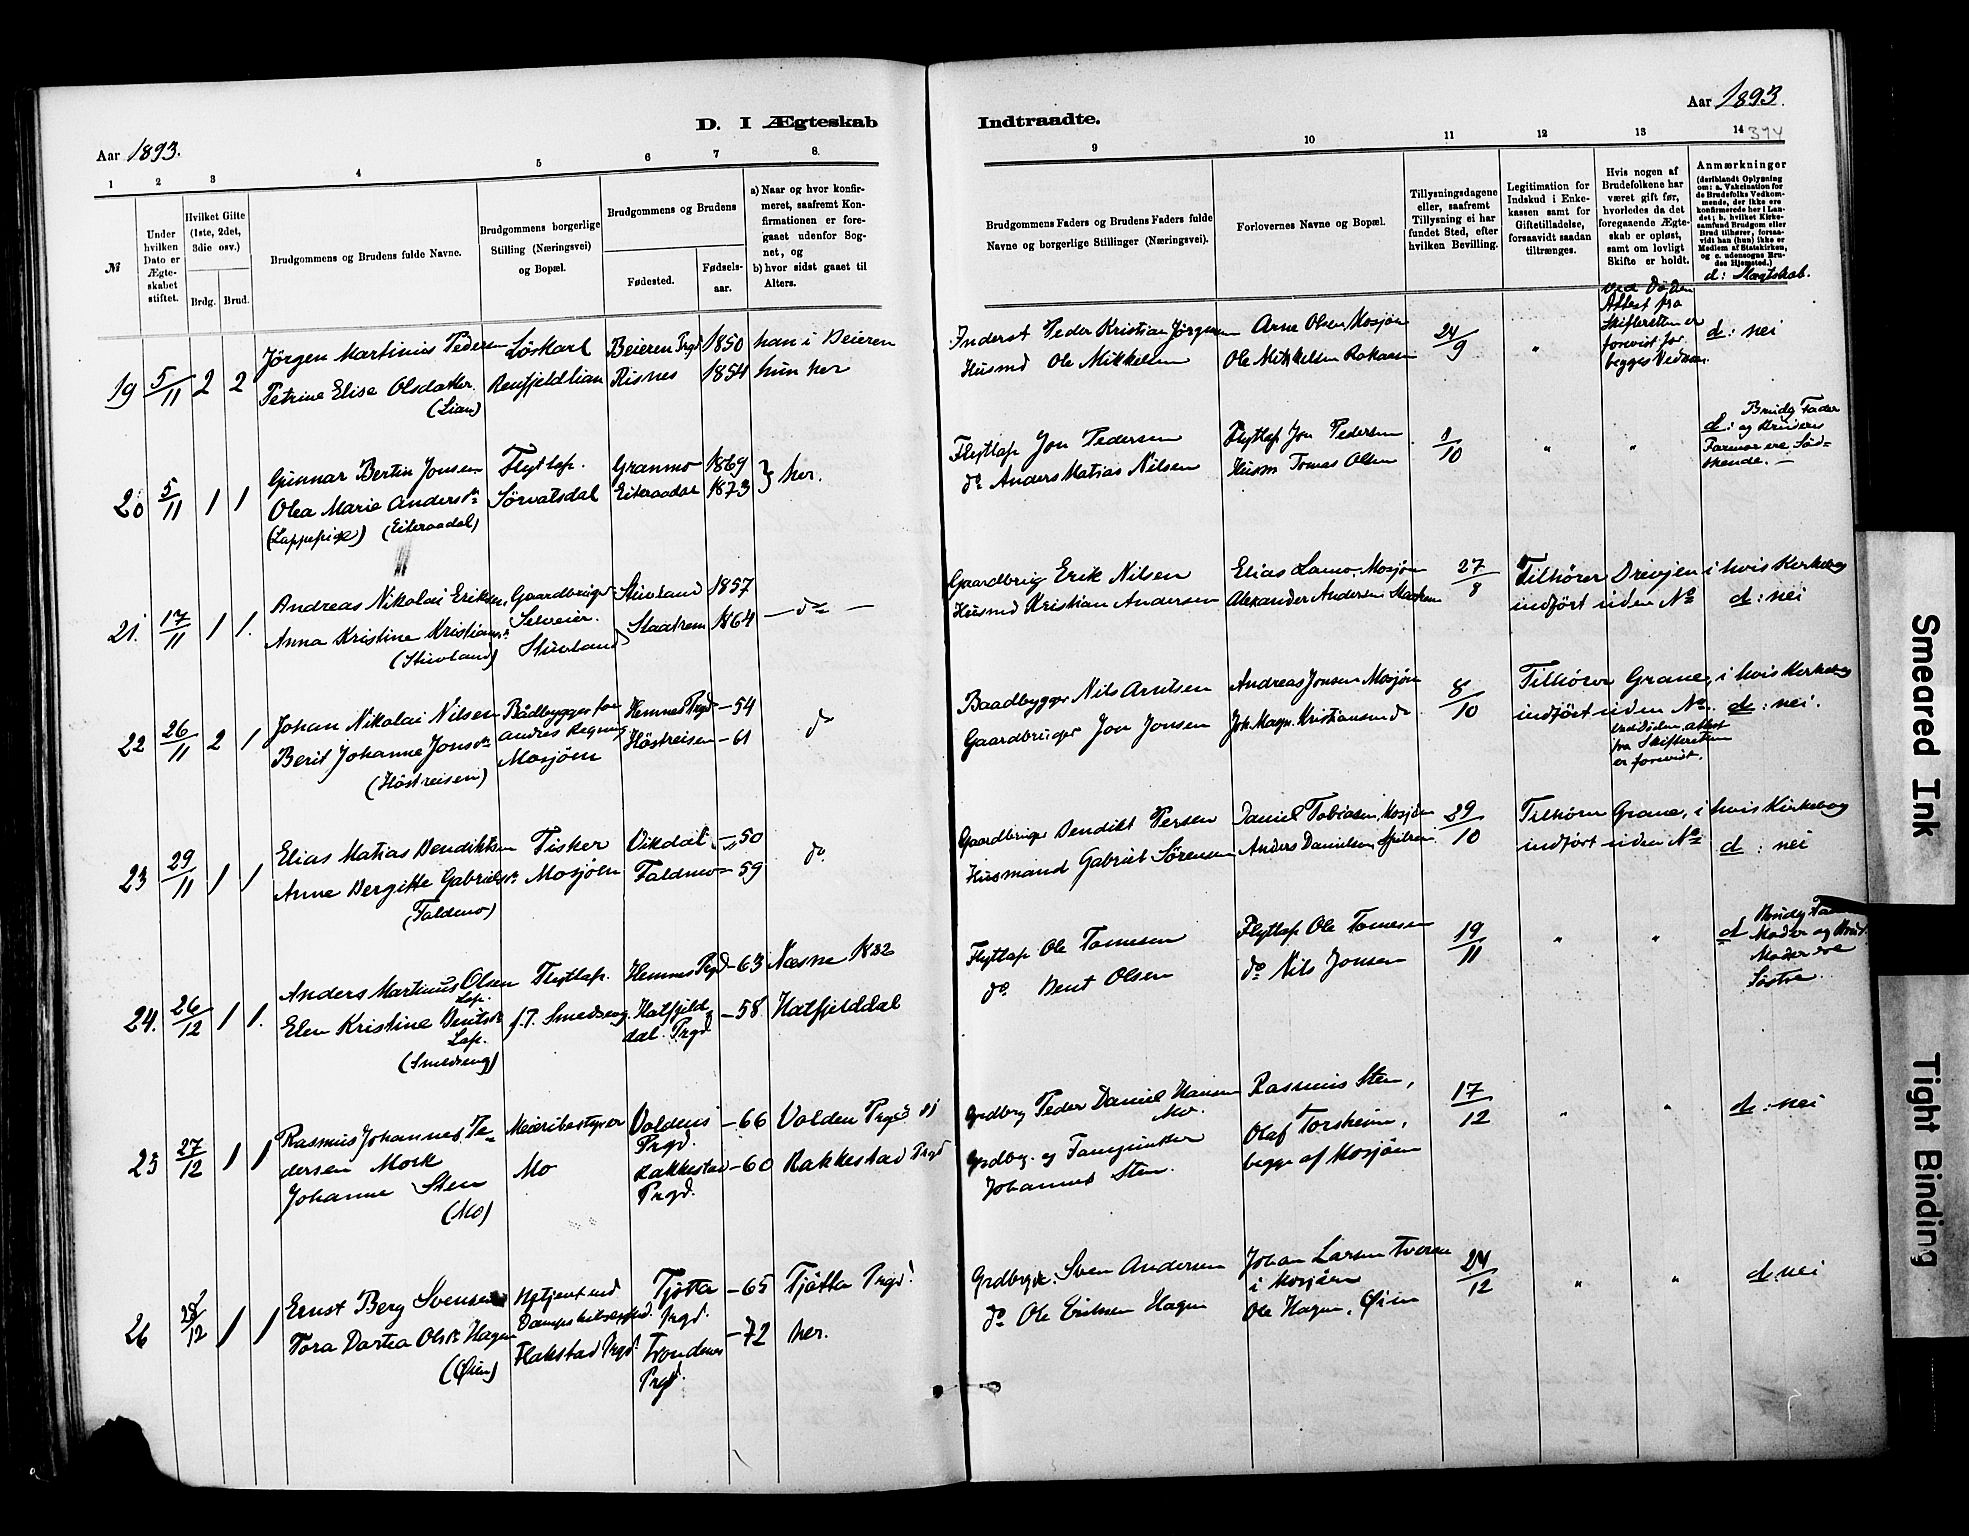 Aar 1893.
D. I Ægteskab
Indtraadte.
Aar 1893.
374
1 2 3 4 5 6 7 8.
9 10 11 12 13 14
№
Under hvilken Dato er Ægteskabet stiftet.
Hvilket Gifte (1ste, 2det, 3die osv.)
Brdg. Brud.
Brudgommens og Brudens fulde Navne.
Brudgommens borgerlige Stilling (Næringsvei) og Bopæl.
Brudgommens og Brudens
Fødested.
Fødselsaar.
a) Naar og hvor konfirmeret, saafremt Konfirmationen er foregaaet udenfor Sognet, og
b) hvor sidst gaaet til Alters.
Brudgommens Faders og Brudens Faders fulde Navne og borgerlige Stillinger (Næringsvei).
Forlovernes Navne og Bopæl.
Tillysningsdagene eller, saafremt Tillysning ei har fundet Sted, efter hvilken Bevilling.
Legitimation for Indskud i Enkekassen samt for Giftetilladelse, forsaavidt saadan tiltrænges.
Hvis nogen af Brudefolkene har været gift før, hvorledes da det foregaaende Ægteskab er opløst, samt om lovligt Skifte er holdt.
Anmærkninger (deriblandt Oplysning om: a. Vakcination for de Brudefolks Vedkommende, der ikke ere konfirmerede her i Landet; b. hvilket Kirkesamfund Brudgom eller Brud tilhører, forsaavidt han (hun) ikke er Medlem af Statskirken, og c. udensogns Brudes Hjemsted.)
d: Slægtskab.
19 5/11 2 2
Jörgen Martinius Pedersen Löskarl Beieren Prgd 1850 han i Beieren
Petrine Elise Olsdatter. Renfjeldlian Risnes 1854 hun her
(Lian)
Inderst Peder Kristian Jörgensen Arne Olsen Mosjön 24/9 "
Husmd Ole Mikkelsen Ole Mikkelsen
ved Döden Attest fra Skifteretten er forevist for begges Vedkom.
d: nei
20 5/11 1 1
Gunnar Bertin Jonsen Flytlap. Granmo 1869
Olea Marie Andersdr Sörvatsdal Eiteraadal 1873 } her.
(Lappepige) (Eiteraadal)
Flytlap Jon Pedersen Flytlap Jon Pedersen 8/10 " "
do Anders Matias Nilsen Husm Tomas Olsen
d: Brudg Fader og Brudens Farmor ere Sødskende. —
21. 17/11 1 1.
Andreas Nikolai Eriksen Gaardbruger Stuvland 1857
Anna Kristine Kristiansdr Selveier. 1864 — do —
(Stuvland) Stuvland
Gaardbrug Erik Nilsen Elias Lamo, Mosjøn 27/8 Tilhører Drevjen i hvis Kirkebog
Husmd Kristian Andersen Alexander Andersen indført uden No d: nei
22 26/11 2 1
Johan Nikolai Nilsen Bådbygger for Hemnes Prgd —54
Berit Johanne Jonsdr andres Regning Høstreisen —61 do
(Høstreisen) Mosjøen
Baadbygger Nils Arntsen Andreas Jonsen Mosjøn 8/10 Tilhører Grane, i hvis Kirkebog
Gaardbruger Jon Jonsen Joh. Magn. Kristiansen do indført uden No. d: nei.
ved Döden attest fra Skifteretten er forevist.
23 29/11 1 1
Elias Matias Bendiktsen Fisker Vikdal —50
Anne Bergitte Gabrielsdr Mosjøen Faldmo —59 do
(Faldmo)
Gaardbruger Bendikt Persen Daniel Tobiasen, Mosjøen 29/10 Tilhører Grane, i hvis Kirkebog
Husmand Gabriel Sørensen Anders Danielsen indført uden No d: nei
24. 26/12 1 1.
Anders Martinus Olsen Flytlap. Hemnes Prgd —63 Næsne 1882
Lap.
Elen Kristine Bentsdr f.T. Smedseng. Hatfjelddal Prgd. —58 Hatfjelddal
Lap.
(Smedseng)
Flytlap Ole Tomesen Flytlap Ole Tomesen 19/11 " "
do. Bent Olsen do Nils Jonsen
d Moder og Moder ere Søstre
25 27/12 1 1
Rasmus Johannes Pedersen Mork Meieribestyrer Voldens Prgd. —66 Volden Prgd
Johanne Sten Mo Rakkestad Prgd. —60 Rakkestad Prgd
(Mo)
Grdbrg Peder Daniel Hansen Mo. Rasmus Sten, 17/12 " "
Grdbrg. og Johannes Sten. Olaf Torsheim, begge af Mosjöen
d: nei
26 28/12 1 1
Ernst Berg Svensen Tjøtta Prgd. —65 Tjøtta Prgd!
Tora Dortea Olsdr Hagen Flakstad Prgd. Trondenes Prgd. —72 her.
(Øien)
Grdbrgr. Sven Andersen Johan Larsen i Mosjøen 24/12 " "
do Ole Eriksen Hagen Ole Hagen, Øien
d: nei
Smeared Ink
Tight Binding